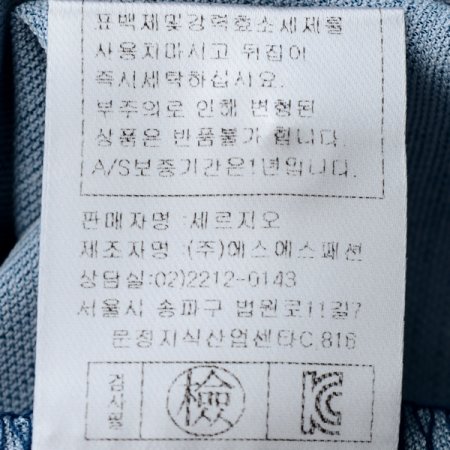 표백제및강력효소세제를
사용지마시고 뒤집어
즉시세탁하십시요.
부주의로 인해 변형된
상품은 반품불가 합니다.
A/S보증기간은1년입니다.
판매자명 :세르지오
제조자명 :(주)에스에스패션
상담실:02)2212-0143
서울시 송파구 법원로11길7
문정지식산업센타C,816
검사필
檢
KC